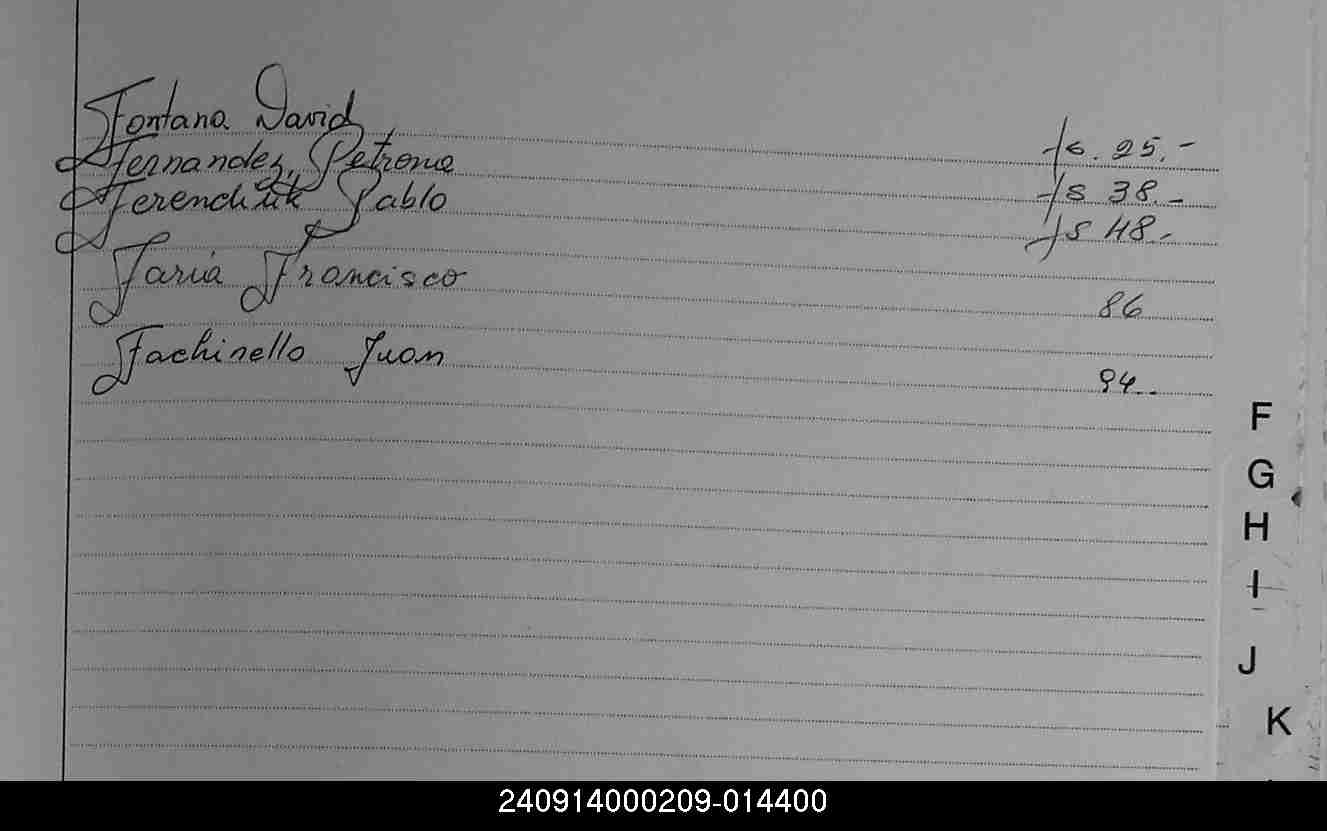 Fontana David fs. 25.-
Fernandez, Petrona fs 38.-
Ferenchuk Pablo fs 48.-
Faria Francisco 86
Fachinello Juan 94..
F
G
H
I
J
K
240914000209-014400